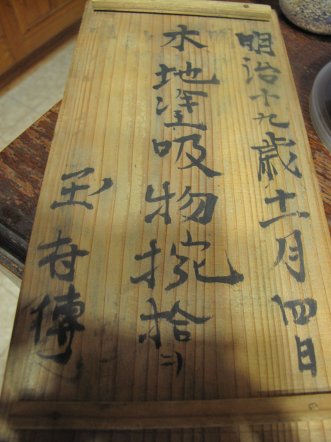 明治十九歳十一月四日
木地塗吸物椀拾
玉村傳